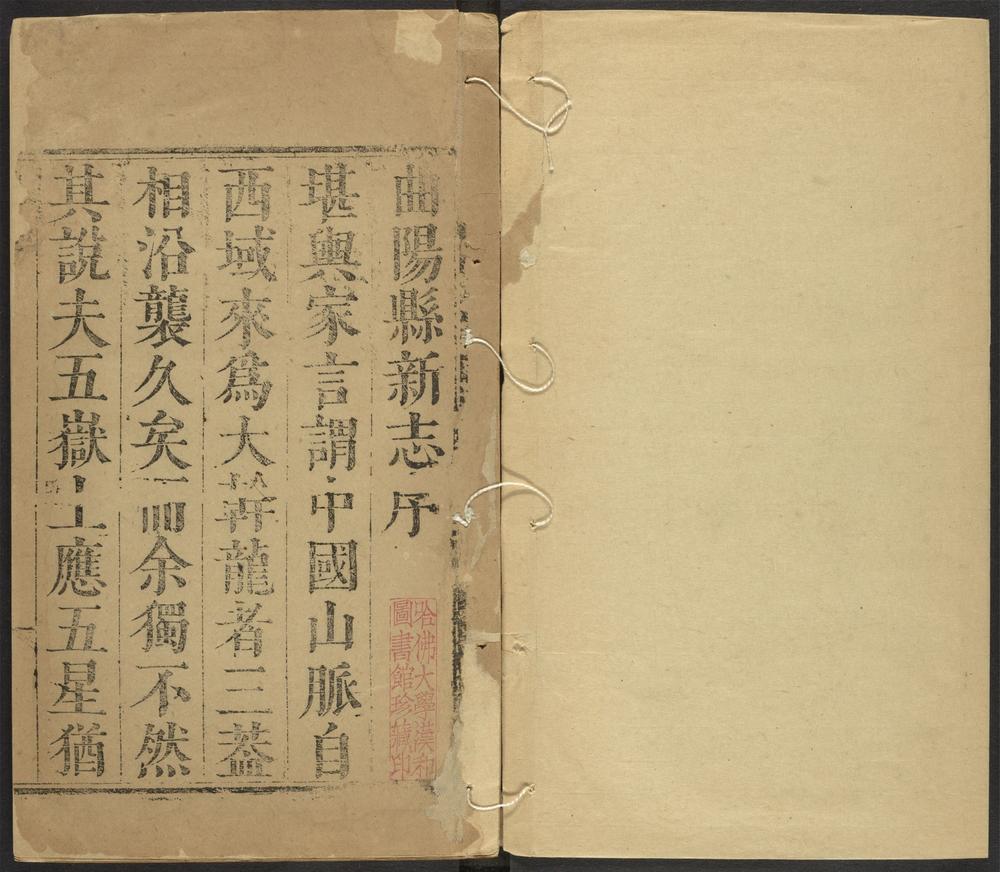 曲陽縣新志序
堪輿家言謂中國山脈自
西域來爲大幹龍者三葢
相沿襲久矣而余獨不然
其說夫五嶽上應五星猶
哈佛大學漢和
圖書館珍藏印